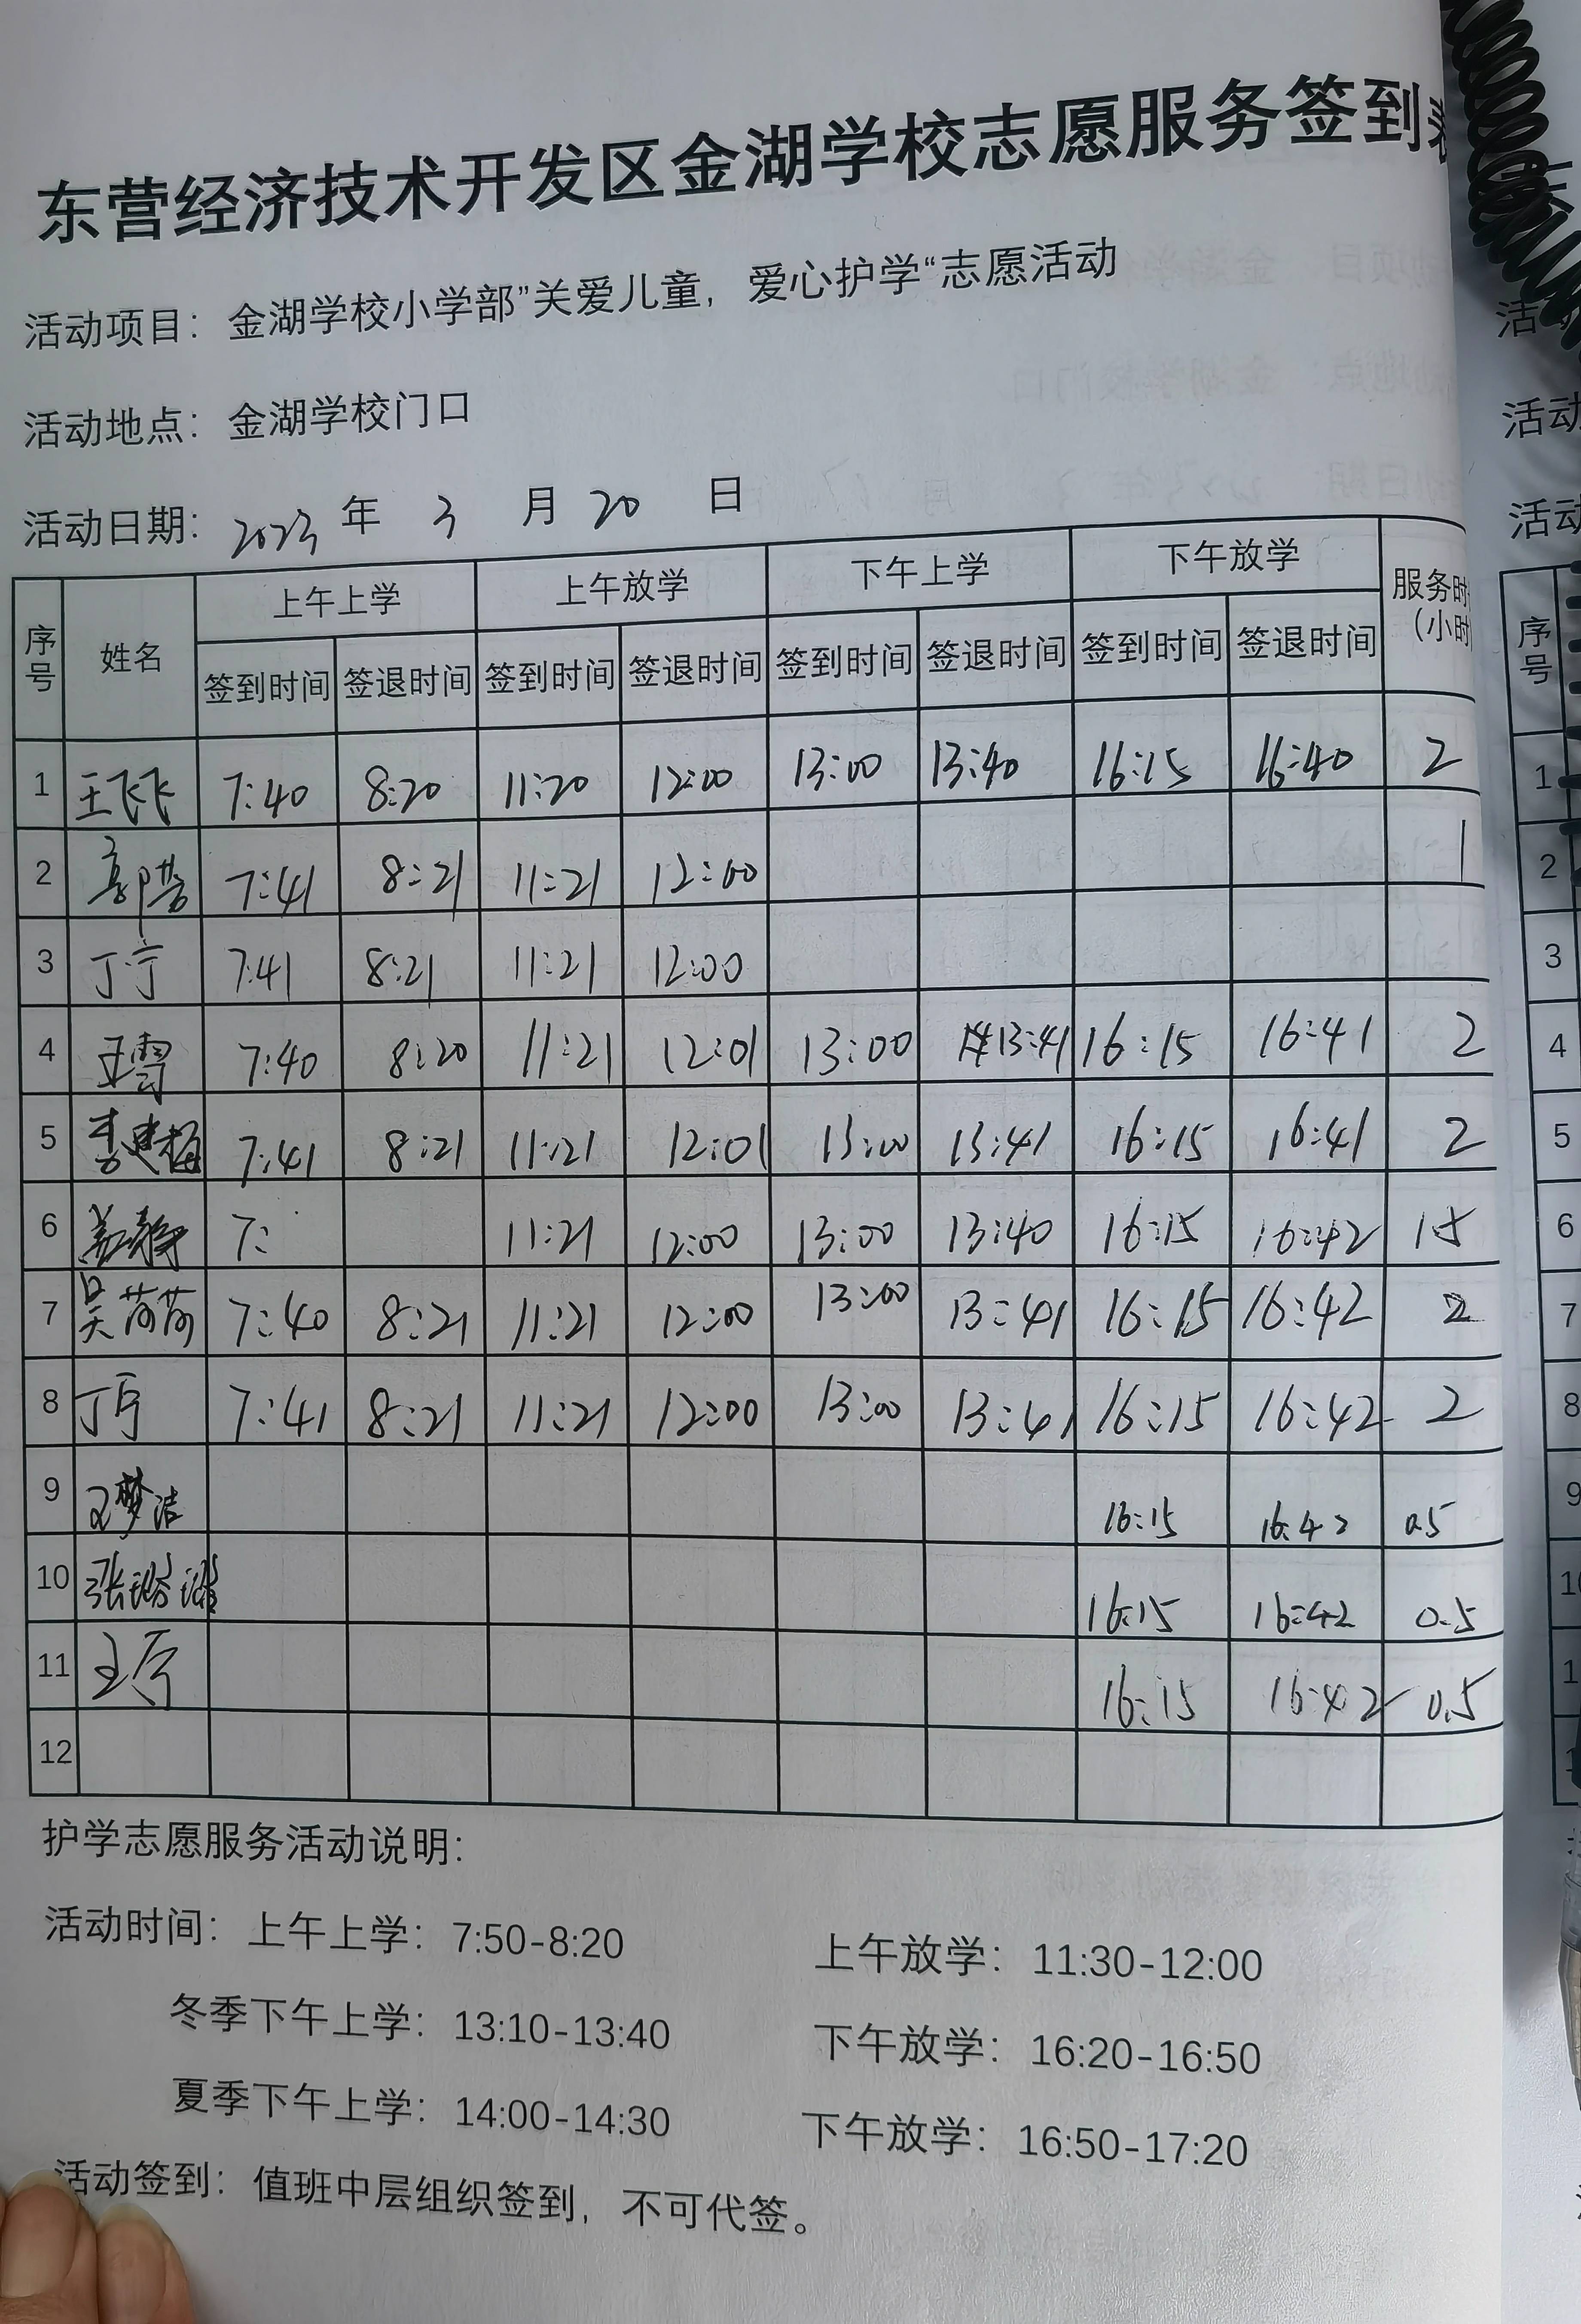 东营经济技术开发区金湖学校志愿服务签到表
活动项目：金湖学校小学部”关爱儿童，爱心护学“志愿活动
活动地点：金湖学校门口
活动日期：2023年 3 月 20 日
序号 姓名 上午上学 上午放学 下午上学 下午放学 服务时 （小时
签到时间 签退时间 签到时间 签退时间 签到时间 签退时间 签到时间 签退时间
1 王飞飞 7:40 8:20 11:20 12:00 13:00 13:40 16:15 16:40 2
2 7:41 8:21 11:21 12:00 1
3 丁宁 7:41 8:21 11:21 12:00
4 王雪 7:40 8:20 11:21 12:01 13:00 13:41 16:15 16:41 2
5 李建梅 7:41 8:21 11:21 12:01 13:00 13:41 16:15 16:41 2
6 7: 11:21 12:00 13:00 13:40 16:15 16:42 1.5
7 吴荷荷 7:40 8:21 11:21 12:00 13:00 13:41 16:15 16:42 2
8 7:41 8:21 11:21 12:00 13:00 13:41 16:15 16:42 2
9 王梦洁 16:15 16:42 0.5
10 16:15 16:42 0.5
11 16:15 16:42 0.5
12
护学志愿服务活动说明：
活动时间：上午上学：7:50-8:20 上午放学：11:30-12:00
冬季下午上学：13:10-13:40 下午放学：16:20-16:50
夏季下午上学：14:00-14:30 下午放学：16:50-17:20
活动签到：值班中层组织签到，不可代签。
活动
活动
序号
1
2
3
4
5
6
7
8
9